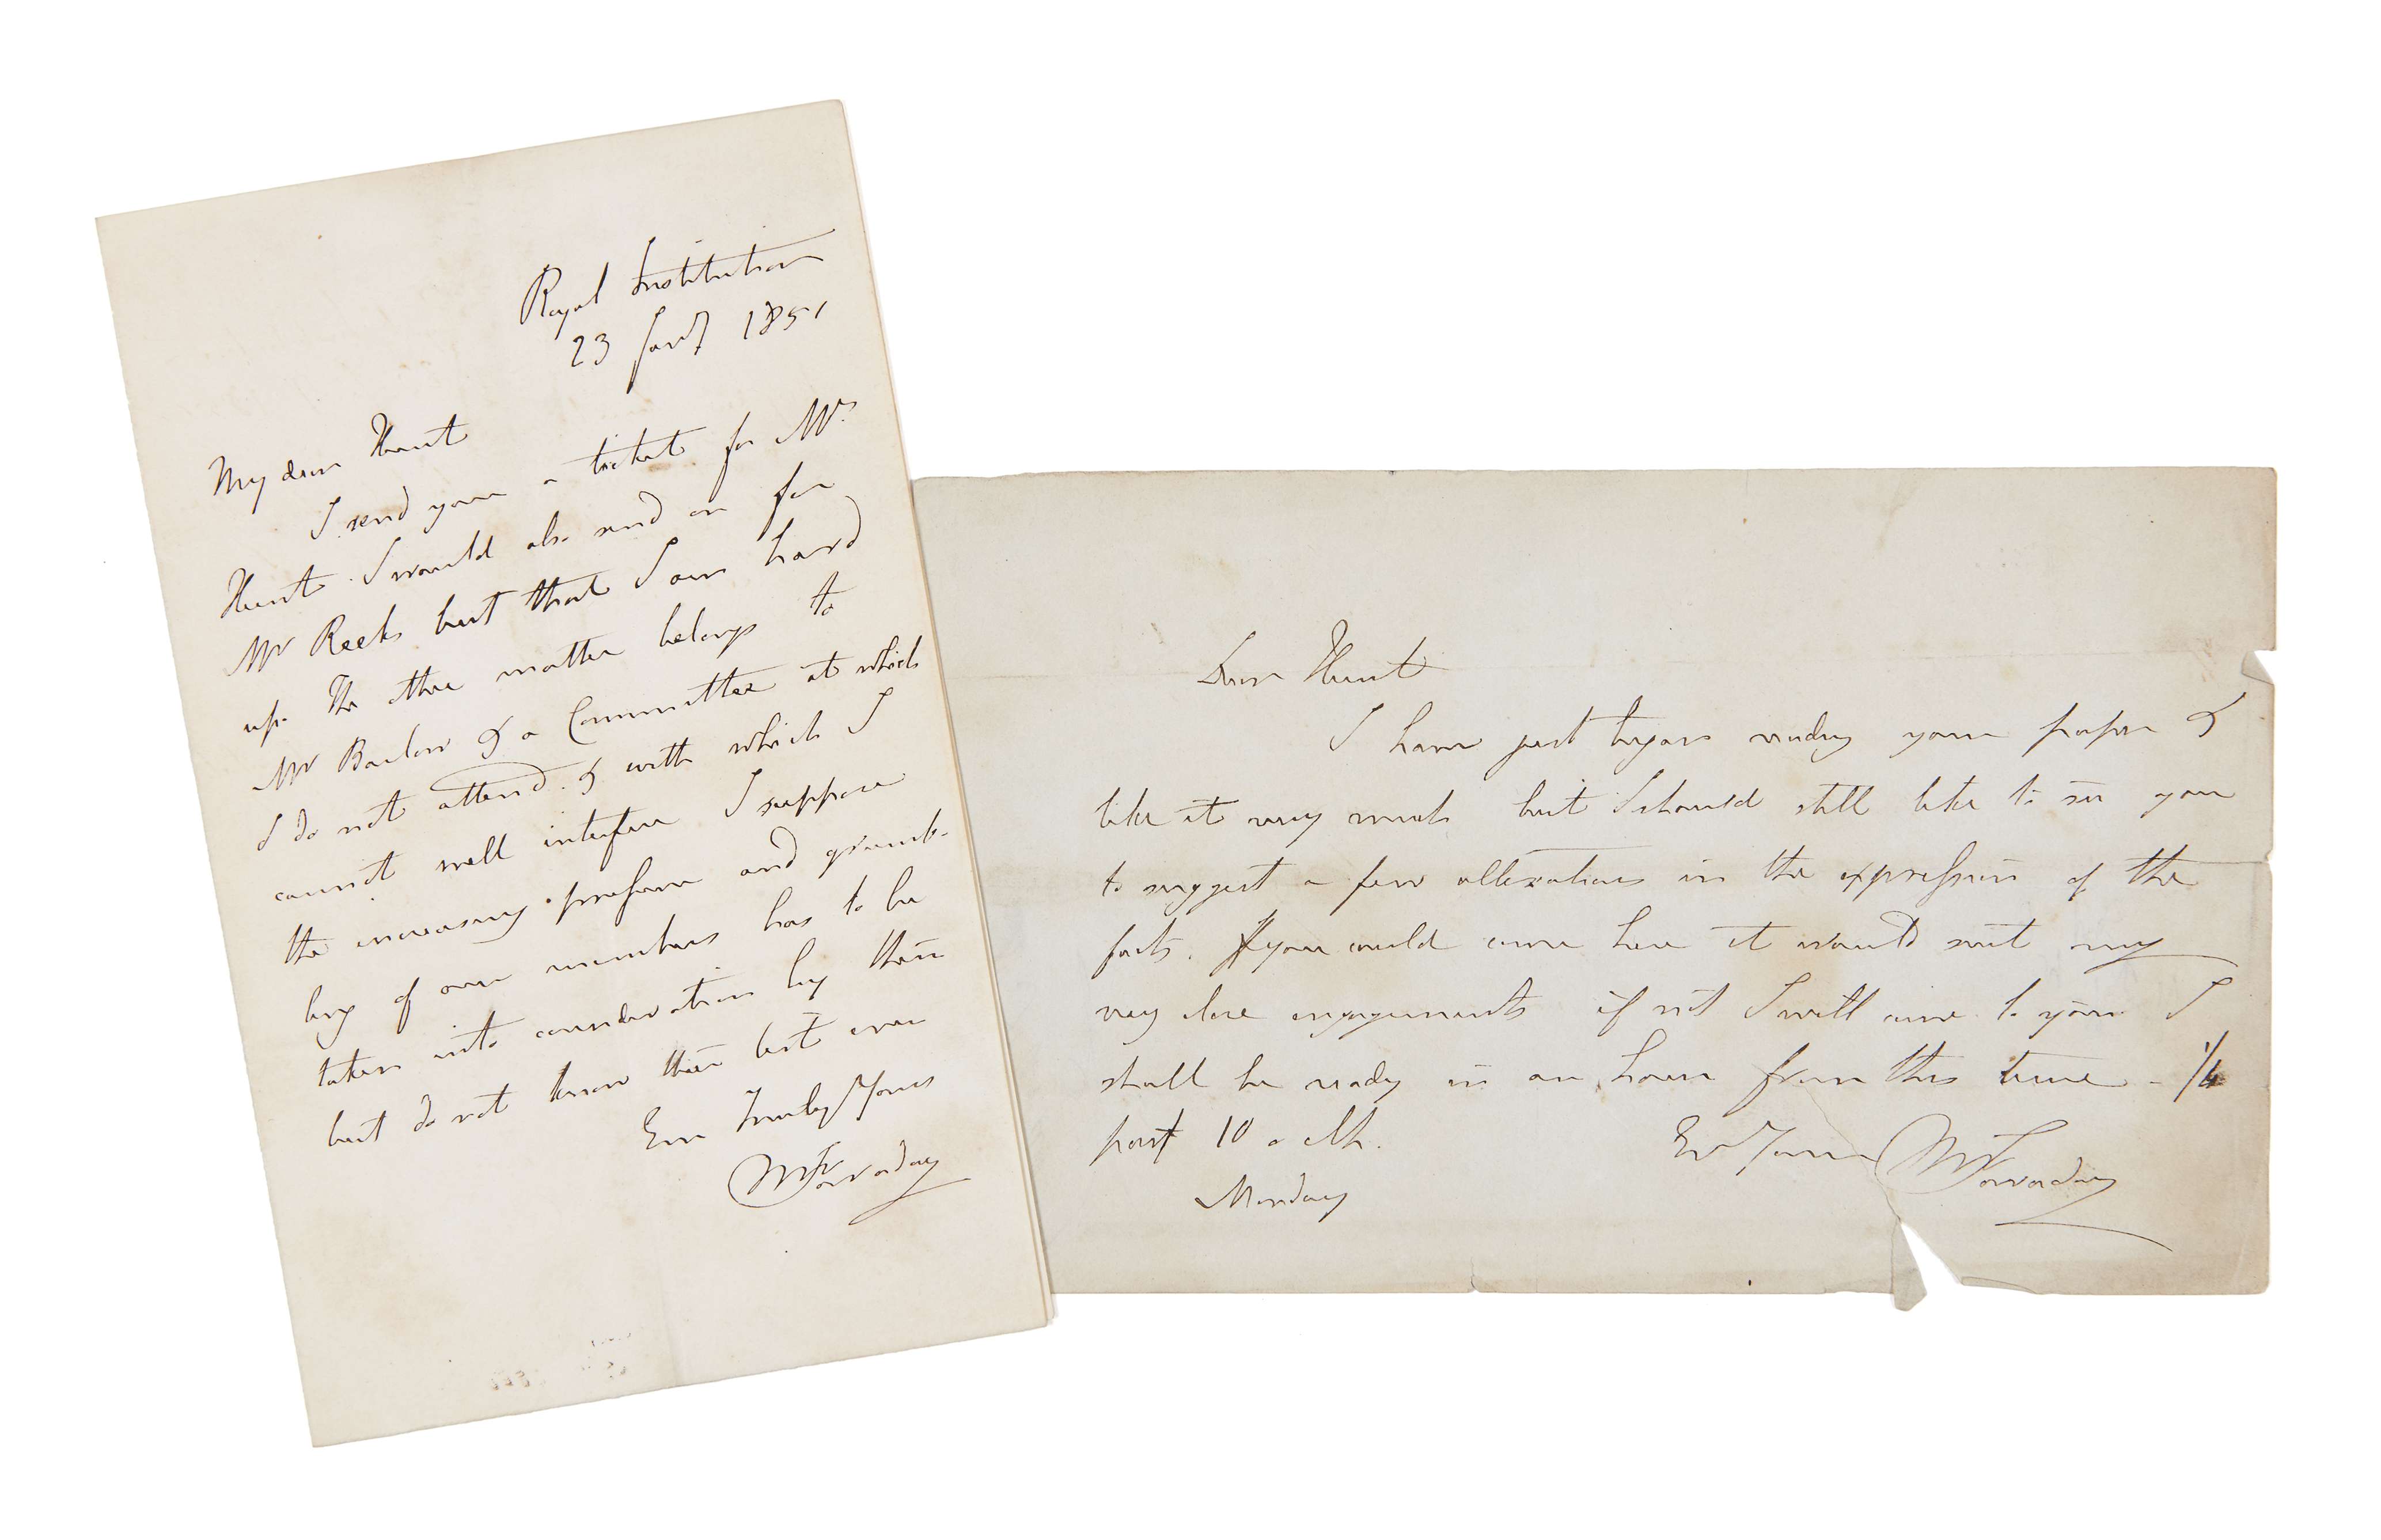 Royal Institution
23 Jany 1851
My dear Hunt
I send you a ticket for Mrs
Hunt. I would also send on for
Mr Reeks but that I am hard
up. The other matter belongs to
Mr Barlow & a Committee at which
I do not attend & with which I
cannot well interfere I suppose
the increasing pressure and grumb-
ling of our members has to be
taken into consideration by them
but do not know their last
Ever Truly Yours
M Faraday
Dear Hunt
I have just begun reading your paper &
like it very much but I should still like to see you
to suggest a few alterations in the expression of the
facts. If you could come here it would suit my
very close engagements if not I will come to you I
shall be ready in an hour from this time - 1/4
past 10 o clk.
Ever Yours M Faraday
Monday